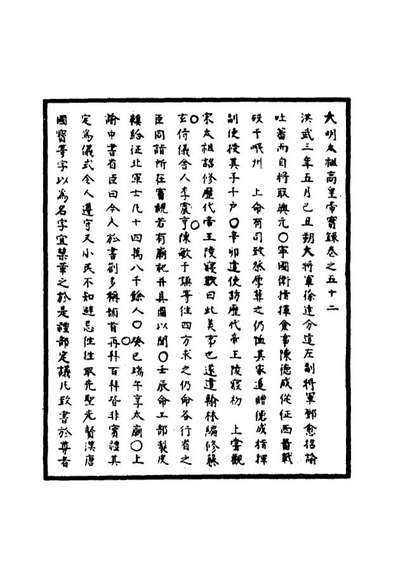 大明太祖高皇帝實錄卷之五十二
洪武三年五月己丑朔大將軍徐達分遣左副將軍鄧愈招諭
吐蕃而自將取興元○寧國衛指揮僉事陳德成從征西番戰
歿于岷州　上命有司致祭厚葬之仍恤其家追贈德成指揮
副使授其子千户○辛卯遣使訪歷代帝王陵寢初　上嘗觀
宋太祖詔修歷代帝王陵寢歎曰此美事也遂遣翰林編修蔡
玄侍儀舍人李震亨陳敏于謙等往四方求之仍命各行省之
臣同詣所在審視若有廟祀并具圖以聞○壬辰命工部製皮
襖給征北軍士凡十四萬八千餘人○癸巳端午享太廟○上
諭中書省臣曰今人於書劄多稱頓首再拜百拜皆非實禮其
定為儀式令人遵守又小民不知避忌往往取先聖先賢漢唐
國寶等字以為名字宜禁革之於是禮部定議凡致書於尊者